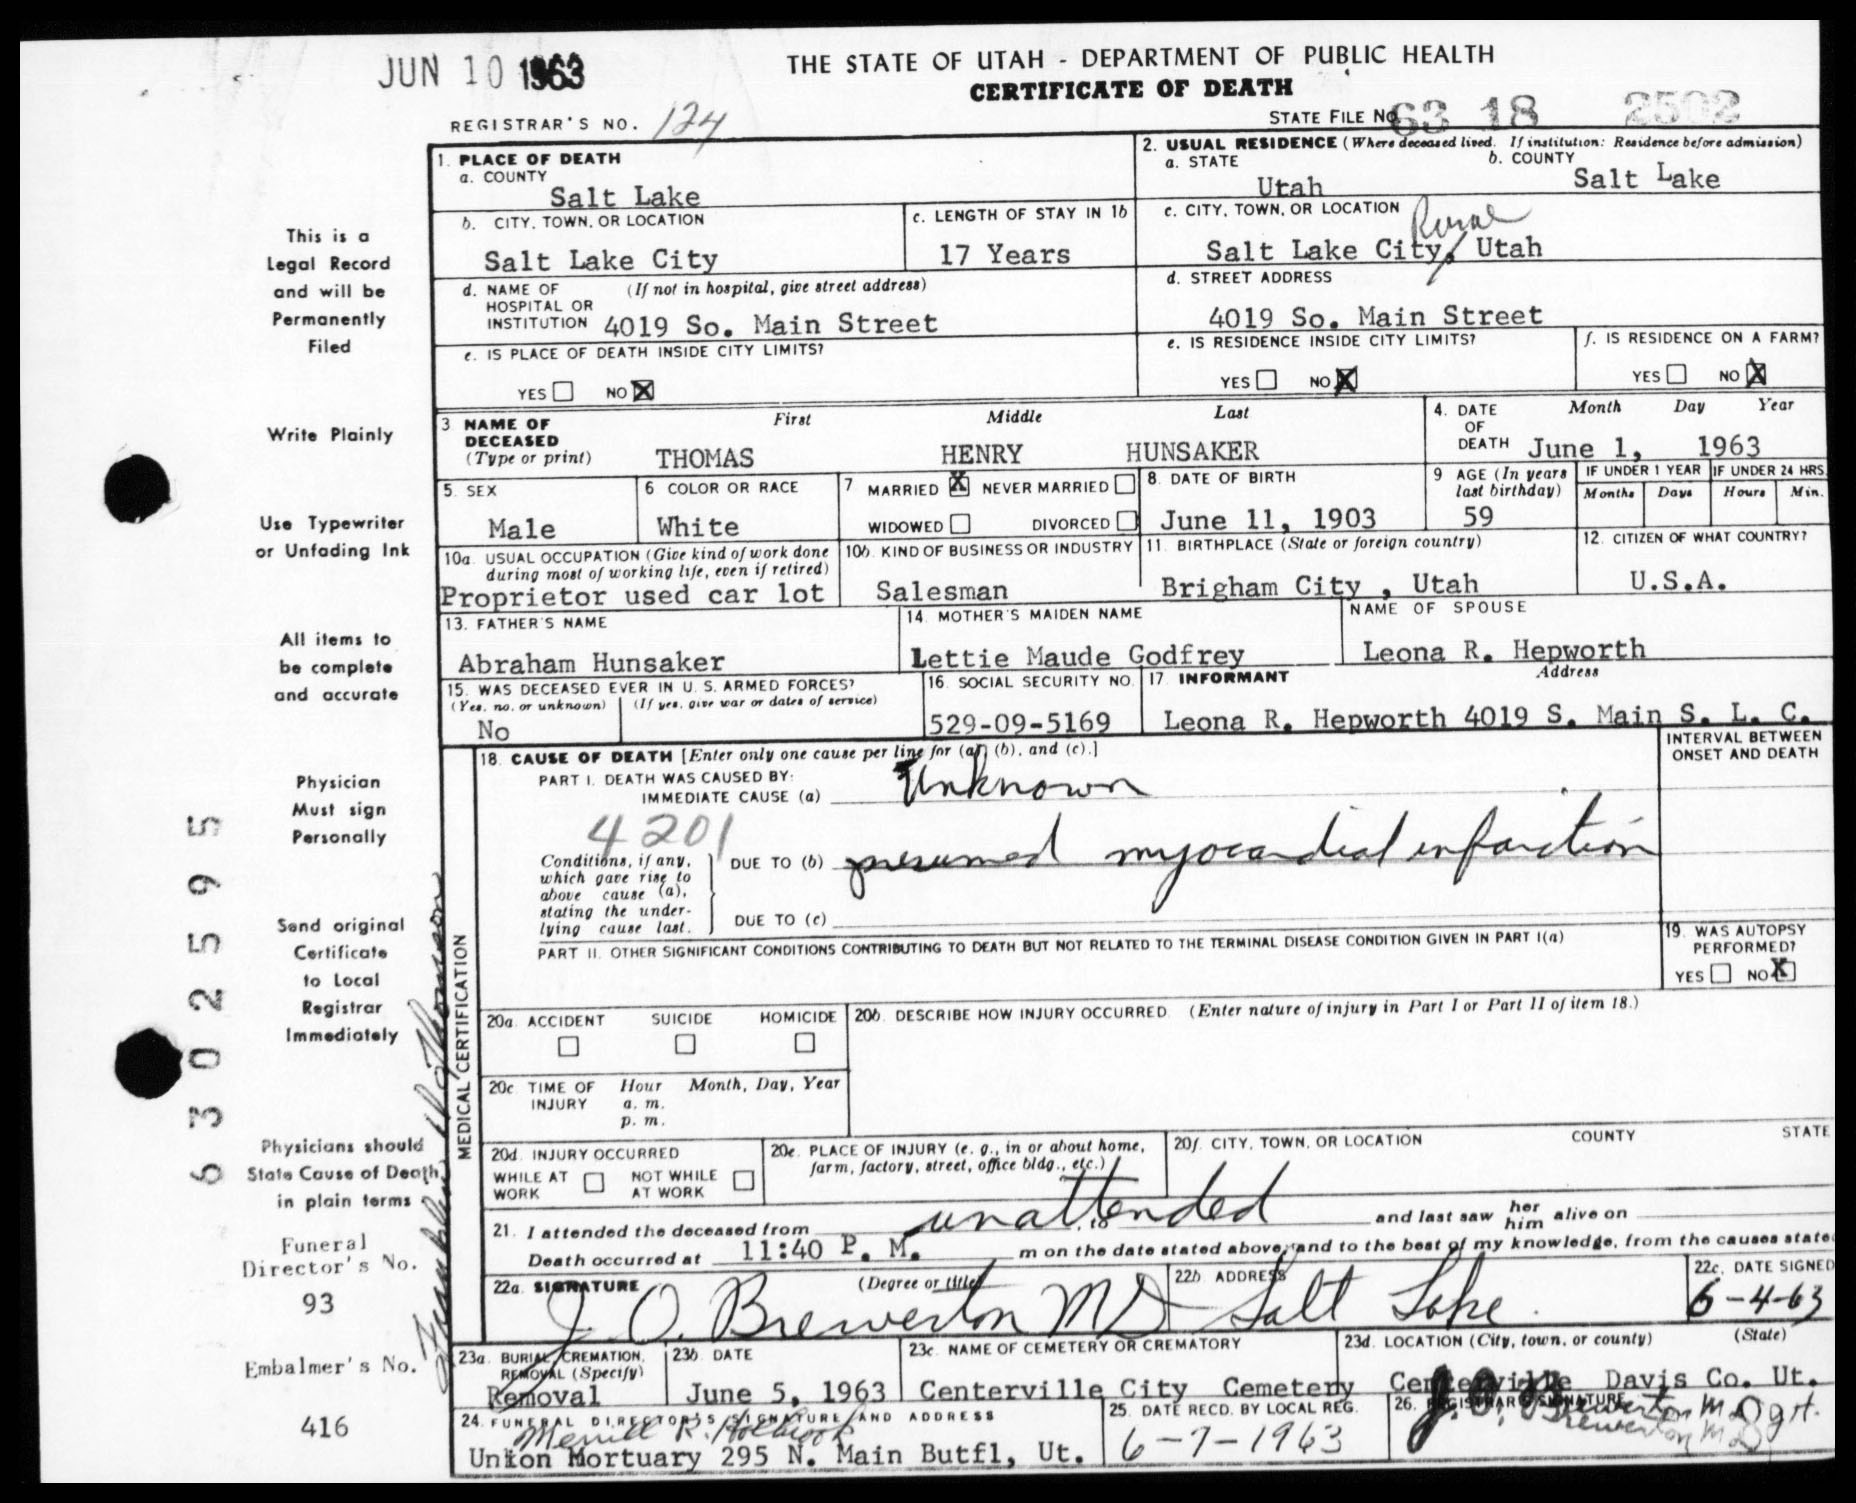 JUN 10 1963
THE STATE OF UTAH - DEPARTMENT OF PUBLIC HEALTH
CERTIFICATE OF DEATH
REGISTRAR'S NO. 124
STATE FILE NO. 63 18 2502
1. PLACE OF DEATH
a. COUNTY
Salt Lake
2. USUAL RESIDENCE (Where deceased lived. If institution: Residence before admission)
a. STATE
Utah
b. COUNTY
Salt Lake
b. CITY, TOWN, OR LOCATION
Salt Lake City
c. LENGTH OF STAY IN 1b
17 Years
c. CITY, TOWN, OR LOCATION
Rural
Salt Lake City, Utah
d. NAME OF (If not in hospital, give street address)
HOSPITAL OR
INSTITUTION 4019 So. Main Street
d. STREET ADDRESS
4019 So. Main Street
e. IS PLACE OF DEATH INSIDE CITY LIMITS?
YES NO X
e. IS RESIDENCE INSIDE CITY LIMITS?
YES NO X
f. IS RESIDENCE ON A FARM?
YES NO X
3 NAME OF
DECEASED
(Type or print)
First Middle Last
THOMAS HENRY HUNSAKER
4. DATE
OF
DEATH
Month Day Year
June 1, 1963
5. SEX
Male
6 COLOR OR RACE
White
7 MARRIED X NEVER MARRIED
WIDOWED DIVORCED
8. DATE OF BIRTH
June 11, 1903
9 AGE (In years
last birthday)
59
IF UNDER 1 YEAR
Months Days
IF UNDER 24 HRS.
Hours Min.
10a. USUAL OCCUPATION (Give kind of work done
during most of working life, even if retired)
Proprietor used car lot
10b. KIND OF BUSINESS OR INDUSTRY
Salesman
11. BIRTHPLACE (State or foreign country)
Brigham City , Utah
12. CITIZEN OF WHAT COUNTRY?
U.S.A.
13. FATHER'S NAME
Abraham Hunsaker
14. MOTHER'S MAIDEN NAME
Lettie Maude Godfrey
NAME OF SPOUSE
Leona R. Hepworth
15. WAS DECEASED EVER IN U. S. ARMED FORCES?
(Yes, no, or unknown) (If yes, give war or dates of service)
No
16. SOCIAL SECURITY NO.
529-09-5169
17. INFORMANT Address
Leona R. Hepworth 4019 S. Main S. L. C.
18. CAUSE OF DEATH [Enter only one cause per line for (a), (b), and (c).]
INTERVAL BETWEEN
ONSET AND DEATH
PART I. DEATH WAS CAUSED BY:
IMMEDIATE CAUSE (a) Unknown
4201
Conditions, if any,
which gave rise to
above cause (a),
stating the under-
lying cause last.
DUE TO (b) presumed myocardial infarction
DUE TO (c)
PART II. OTHER SIGNIFICANT CONDITIONS CONTRIBUTING TO DEATH BUT NOT RELATED TO THE TERMINAL DISEASE CONDITION GIVEN IN PART I(a)
19. WAS AUTOPSY
PERFORMED?
YES NO X
MEDICAL CERTIFICATION
20a. ACCIDENT SUICIDE HOMICIDE
20b. DESCRIBE HOW INJURY OCCURRED. (Enter nature of injury in Part I or Part II of item 18.)
20c. TIME OF Hour Month, Day, Year
INJURY a. m.
p. m.
20d. INJURY OCCURRED
WHILE AT NOT WHILE
WORK AT WORK
20e. PLACE OF INJURY (e. g., in or about home,
farm, factory, street, office bldg., etc.)
20f. CITY, TOWN, OR LOCATION COUNTY STATE
21. I attended the deceased from unattended, to and last saw her him alive on
Death occurred at 11:40 P. M. m on the date stated above, and to the best of my knowledge, from the causes state
22a. SIGNATURE (Degree or title)
J. O. Brewerton MD
22b. ADDRESS
Salt Lake
22c. DATE SIGNED
6-4-63
23a. BURIAL, CREMATION,
REMOVAL (Specify)
Removal
23b. DATE
June 5, 1963
23c. NAME OF CEMETERY OR CREMATORY
Centerville City Cemetery
23d. LOCATION (City, town, or county) (State)
Centerville Davis Co. Ut.
24. FUNERAL DIRECTOR'S SIGNATURE AND ADDRESS
Merrill R. Holbrook
Union Mortuary 295 N. Main Butfl, Ut.
25. DATE RECD. BY LOCAL REG.
6-7-1963
26. REGISTRAR'S SIGNATURE
J. O. Brewerton M.D.
Brewerton MD
This is a
Legal Record
and will be
Permanently
Filed
Write Plainly
Use Typewriter
or Unfading Ink
All items to
be complete
and accurate
Physician
Must sign
Personally
Send original
Certificate
to Local
Registrar
Immediately
Physicians should
State Cause of Death
in plain terms
Funeral
Director's No.
93
Embalmer's No.
416
63025595